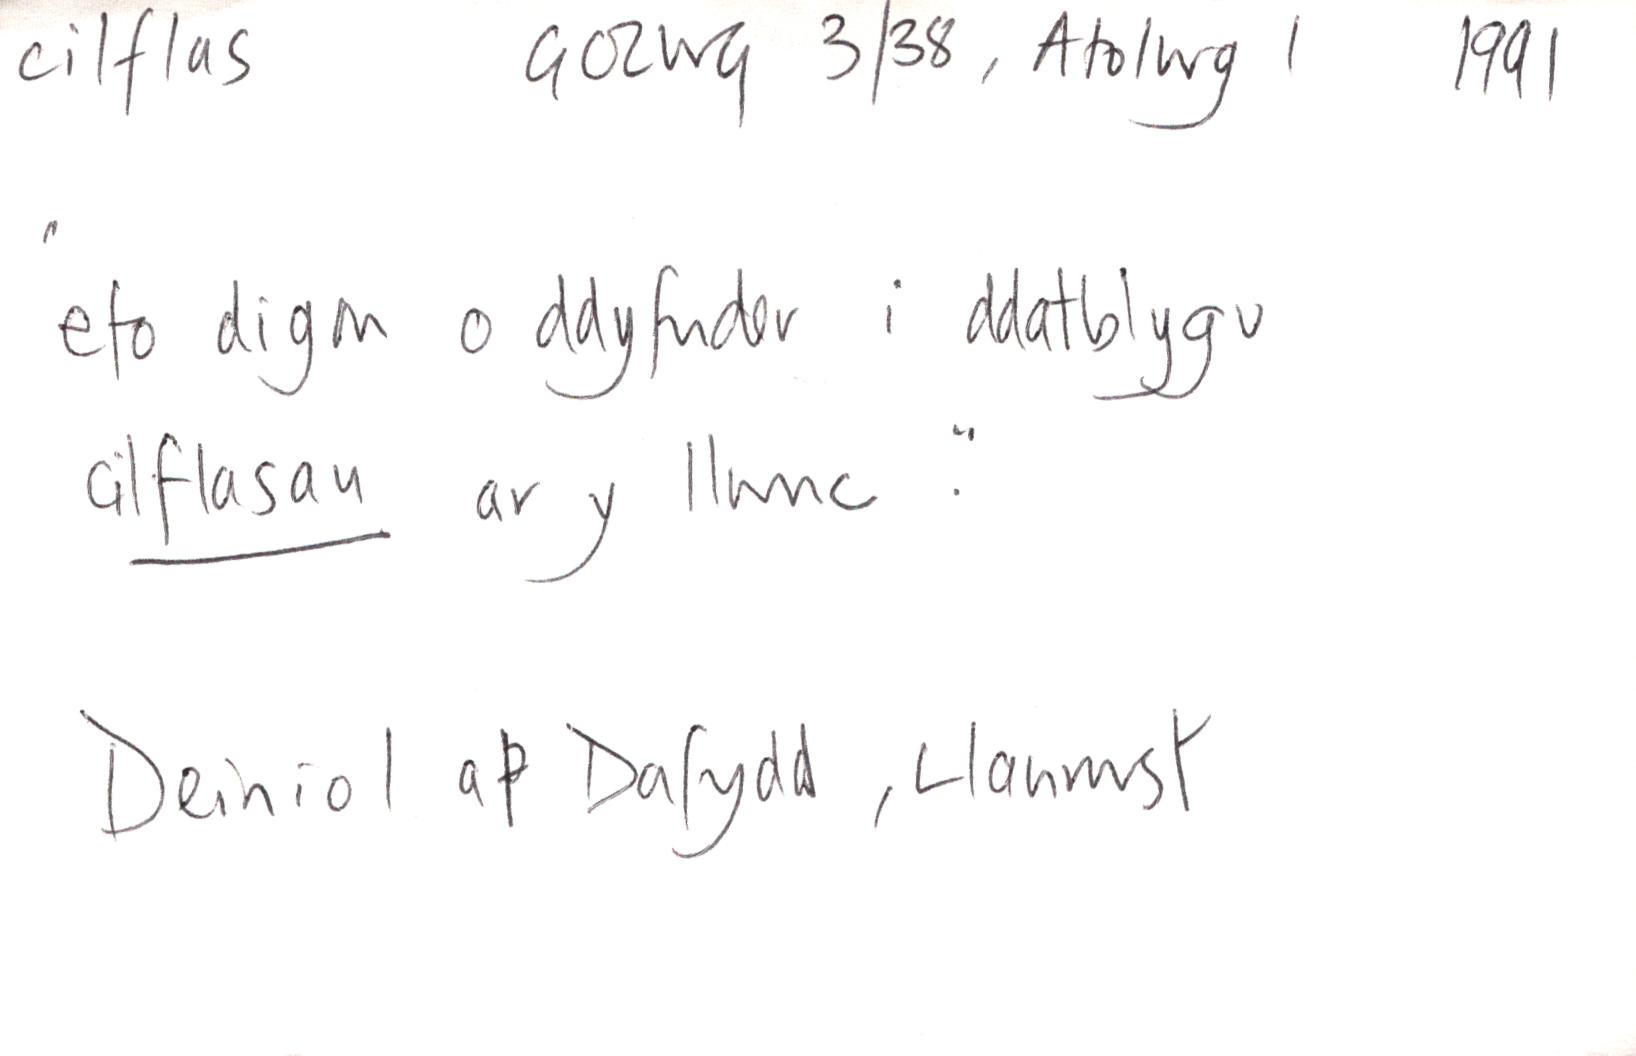 cilflas GOLWG 3/38, Atolwg 1 1991
"eto digon o ddyfnder i ddatblygu
cilflasau ar y llwnc".
Deiniol ap Dafydd, Llanrwst